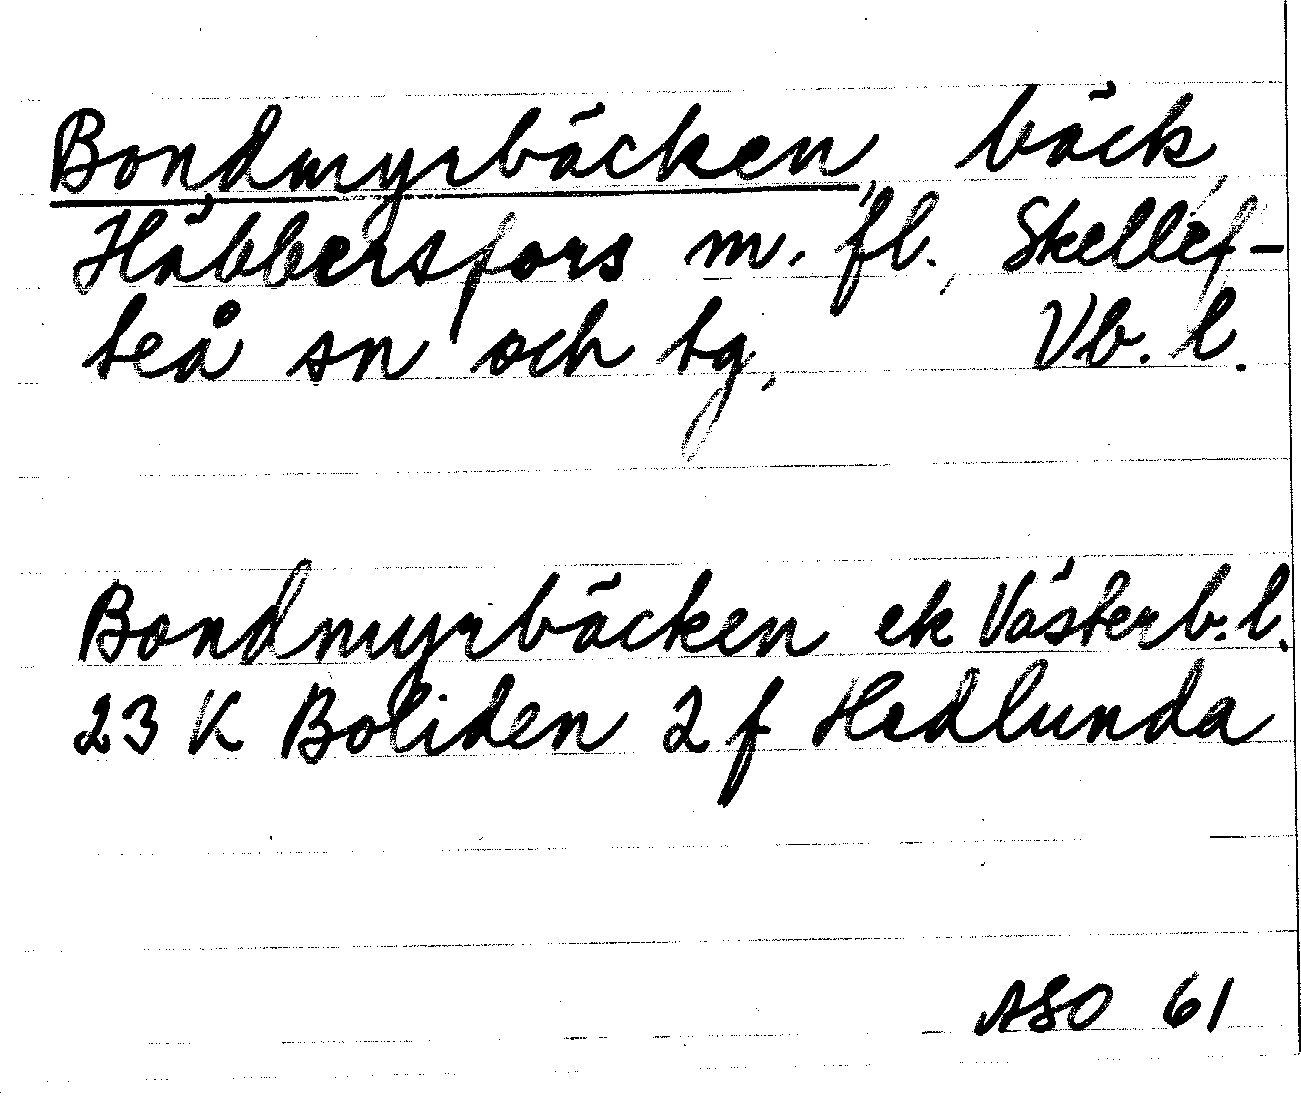 Bondmyrbäcken, bäck,
Häbbersfors m. fl., Skellef-
teå sn och tg, Vb. l.
Bondmyrbäcken ek Västerb. l.
23 K Boliden 2 f Hedlunda
ASO 61